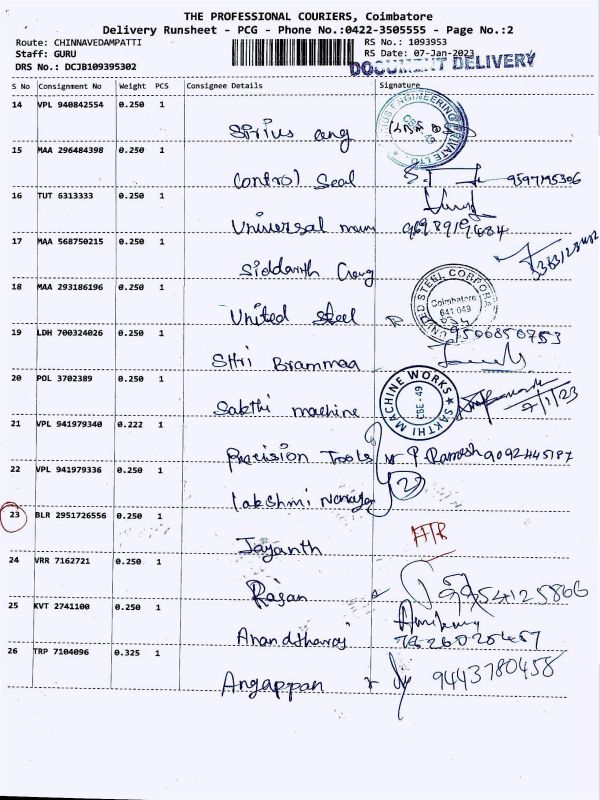 THE PROFESSIONAL COURIERS, Coimbatore
Delivery Runsheet - PCG - Phone No.:0422-3505555 - Page No.:2
Route: CHINNAVEDAMPATTI
RS No.: 1093953
Staff: GURU
RS Date: 07-Jan-2023
DRS No.: DCJB109395302
DOCUMENT DELIVERY
S No Consignment No Weight PCS Consignee Details Signature
14 VPL 940842554 0.250 1
Sirius eng
ENGINEERING PRIVATE LTD
CBE - 49
15 MAA 296484398 0.250 1
Control Seal 9597195306
16 TUT 6313333 0.250 1
Universal 9698919484
17 MAA 568750215 0.250 1
Siddarth
18 MAA 293186196 0.250 1
United steel
UNITED STEEL CORPORA
Coimbatore
641 049
19 LDH 700324026 0.250 1
9506850753
Shri Brammaa
20 POL 3702389 0.250 1
Sakthi machine
SAKTHI MACHINE WORKS
CBE - 49
7/1/23
21 VPL 941979340 0.222 1
Precision Tools P Ramesh 9092445187
22 VPL 941979336 0.250 1
Lakshmi Narayan
22
23 BLR 2951726556 0.250 1
Jayanth
24 VRR 7162721 0.250 1
Rajan 9954125866
25 KVT 2741100 0.250 1
Anandsharaj
26 TRP 7104096 0.325 1
Angappan 9443780458